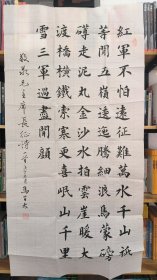 紅軍不怕遠征難萬水千山祇
等閑五嶺逶迤騰細浪烏蒙磅
礴走泥丸金沙水拍雲崖暖大
渡橋橫鐵索寒更喜岷山千里
雪三軍過盡開顏
敬录毛主席長征诗